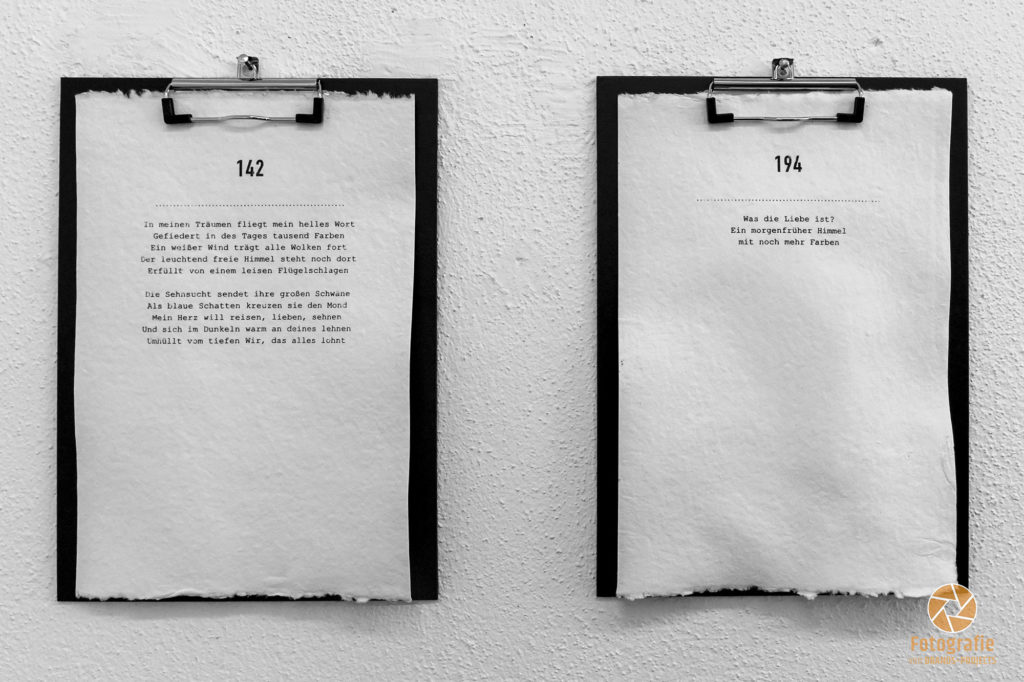 142
In meinen Träumen fliegt mein helles Wort
Gefiedert in des Tages tausend Farben
Ein weißer Wind trägt alle Wolken fort
Der leuchtend freie Himmel steht noch dort
Erfüllt von einem leisen Flügelschlagen
Die Sehnsucht sendet ihre großen Schwäne
Als blaue Schatten kreuzen sie den Mond
Mein Herz will reisen, lieben, sehnen
Und sich im Dunkeln warm an deines lehnen
Umhüllt vom tiefen Wir, das alles lohnt
194
Was die Liebe ist?
Ein morgenfrüher Himmel
mit noch mehr Farben
Fotografie